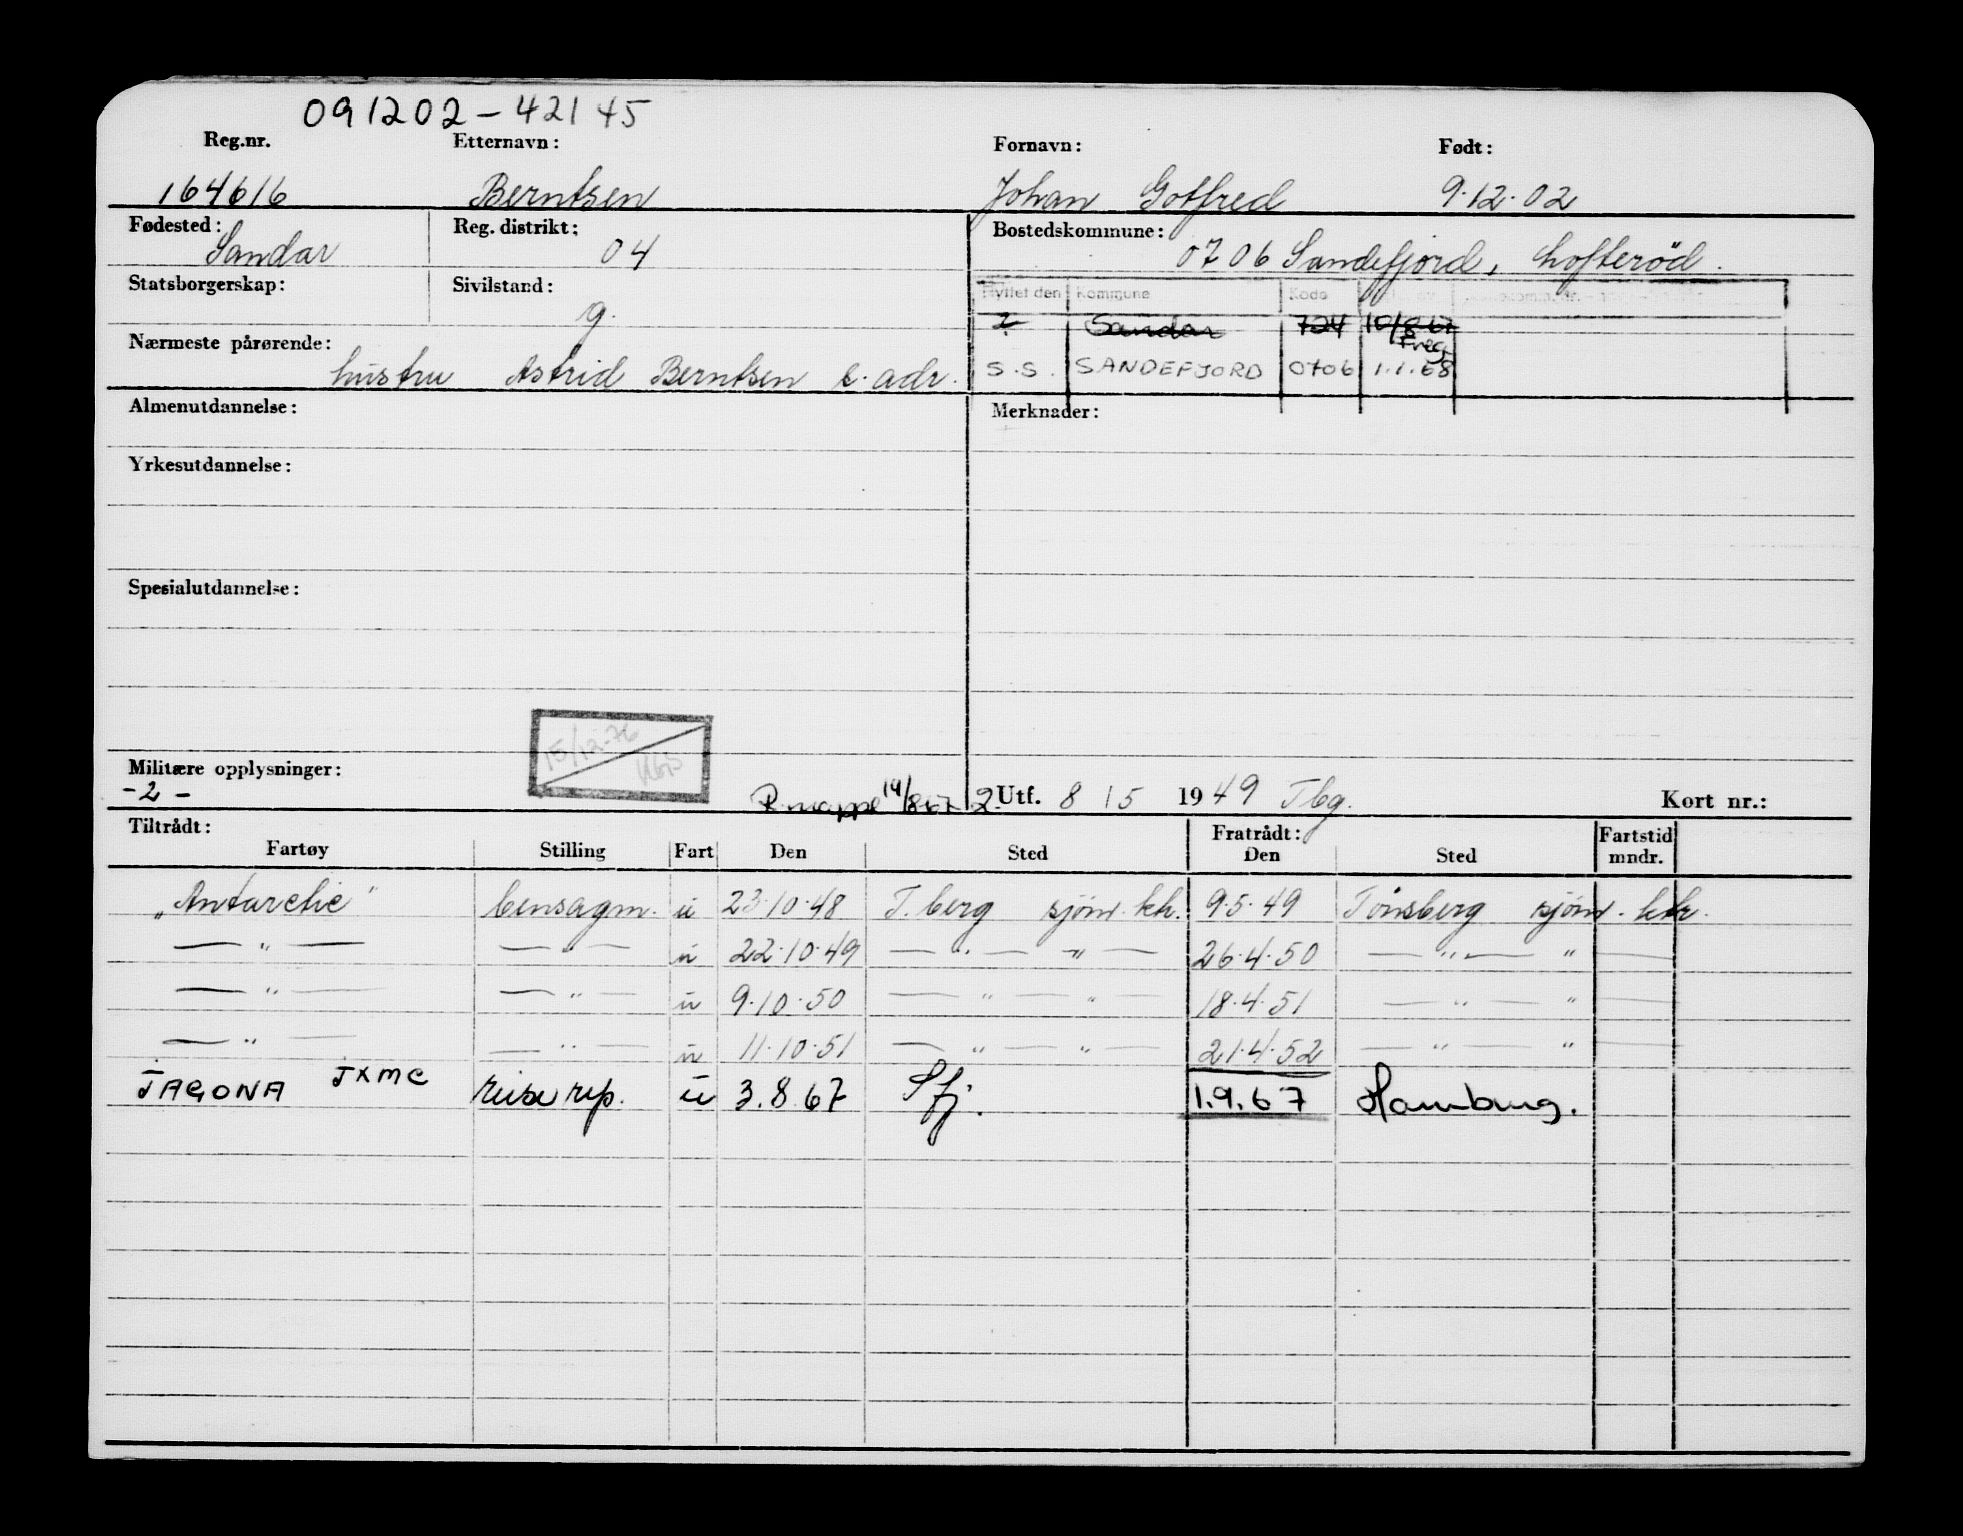 091202-42145
Reg.nr. Etternavn: Fornavn: Født:
164616 Berntsen Johan Gotfred 9.12.02
Fødested: Sandar Reg. distrikt: 04 Bostedskommune: 0706 Sandefjord, Lofterød.
Statsborgerskap: Sivilstand: g.
Flyttet den Kommune Kode
Sandar 724 10/8 67
Freg.
S.S. SANDEFJORD 0706 1.1.68
Nærmeste pårørende: hustru Astrid Berntsen s. adr.
Almenutdannelse: Merknader:
Yrkesutdannelse:
Spesialutdannelse:
15/12-76
Militære opplysninger:
-2- P.mappe 14/8-67 2. Utf. 8 / 5 1949 Tbg. Kort nr.:
Tiltrådt: Fratrådt: Fartstid
Fartøy Stilling Fart Den Sted Den Sted mndr.
"Antarctic" bensagm. u 23.10.48 T.berg sjöm. ktr. 9.5.49 Tönsberg sjöm. ktr.
— " — — " — u 22.10.49 — " — " — 26.4.50 — " — " —
— " — — " — u 9.10.50 — " — " — 18.4.51 — " — " —
— " — — " — u 11.10.51 — " — " — 21.4.52 — " — " —
JAGONA JXMC reise rep. u 3.8.67 Sfj. 1.9.67 Hamburg.